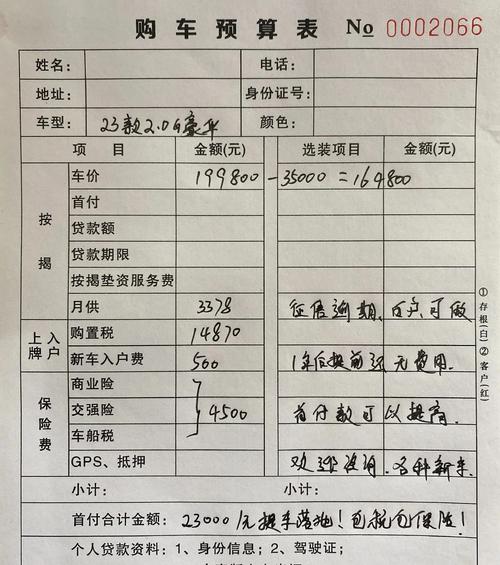 购车预算表 No 0002066
姓名： 电话：
地址： 身份证号：
车型：23款2.0G豪华 颜色：
项 目 金额(元) 选装项目 金额(元)
按揭
车价 199800 - 35000 = 164800
首付
贷款额
贷款期限
按揭垫资服务费
月供 3378 征信逾期、白户可做
上牌 入户
购置税 14870
新车入户费 500 1年后提前还 无费用.
保险费
商业险
交强险 4500 首付款可以提高.
车船税
GPS、抵押 欢迎咨询.各种新车
小计： 小计：
首付合计金额：23000元提车落地！包税包保险！
个人贷款资料：1、身份信息；2、驾驶证；
①存根(白) ②客户(红)